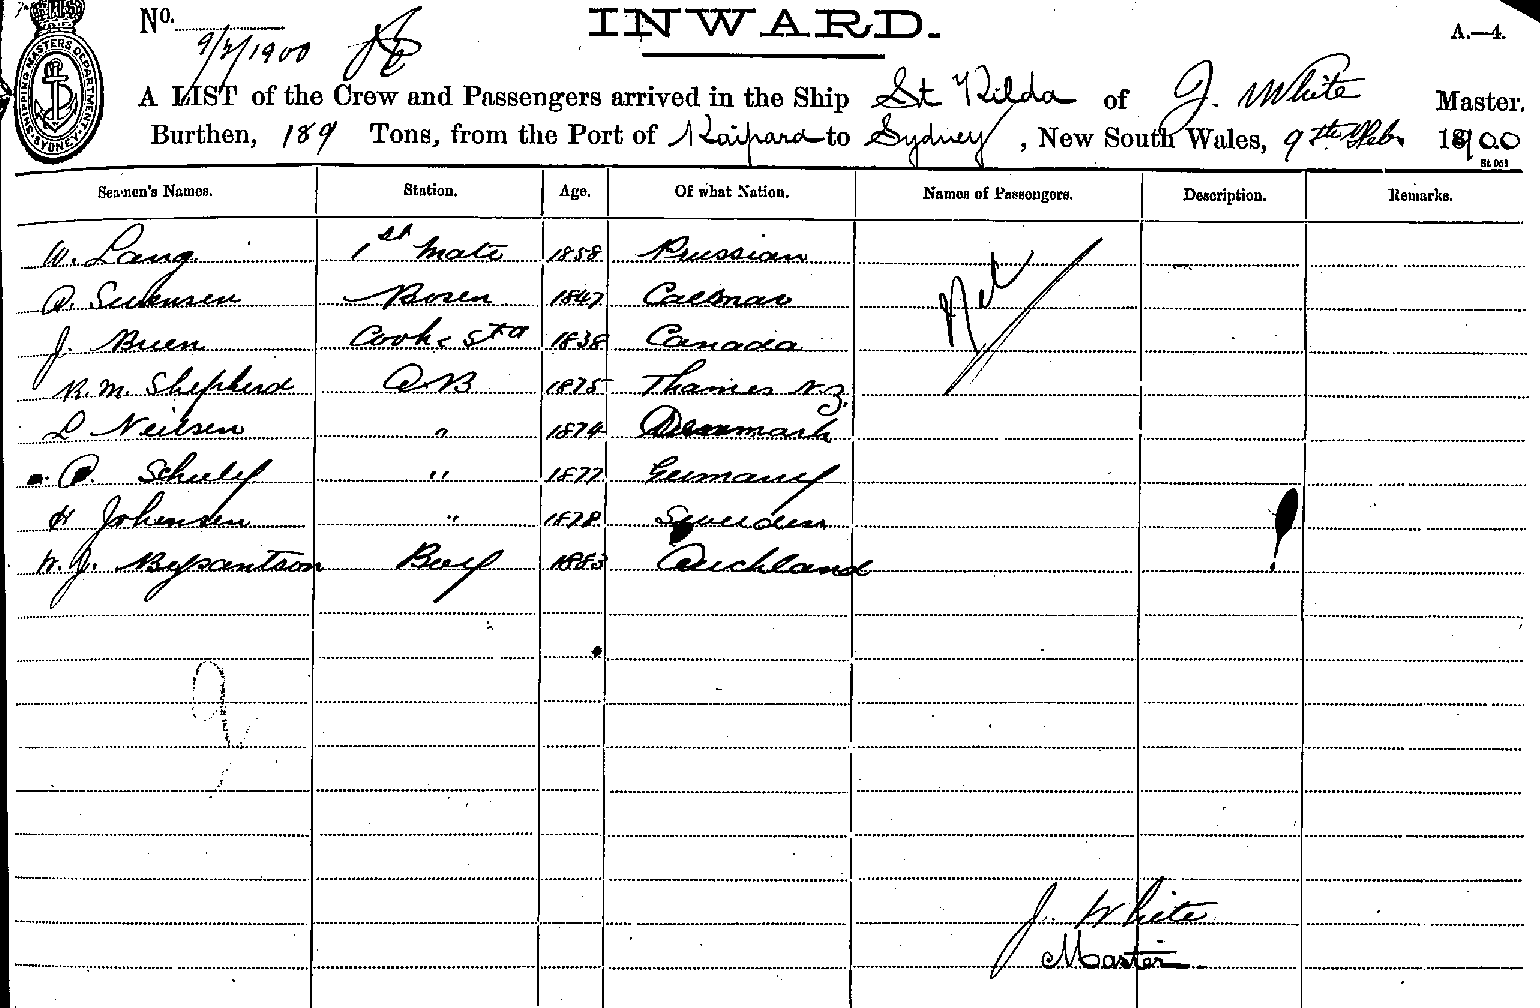 No.
9/2/1900
INWARD.
A.—4.
SHIPPING MASTERS DEPARTMENT. SYDNEY.
A LIST of the Crew and Passengers arrived in the Ship St Kilda of J. White Master.
Burthen, 189 Tons, from the Port of Kaipara to Sydney, New South Wales, 9th Feb. 1900
Seamen's Names. Station. Age. Of what Nation. Names of Passengers. Description. Remarks.
W. Lang 1st Mate 1858 Prussian Nil
Swensen Bosen 1847
J. Buen Cook & Std 1838 Canada
R. M. Shepherd AB 1875 Thames N.Z.
L Neilsen " 1874 Denmark
" 1877 Germany
H Johensen " 1878 Sweeden
W. J. Bysantson Boy 1883 Auckland
J. White
Master